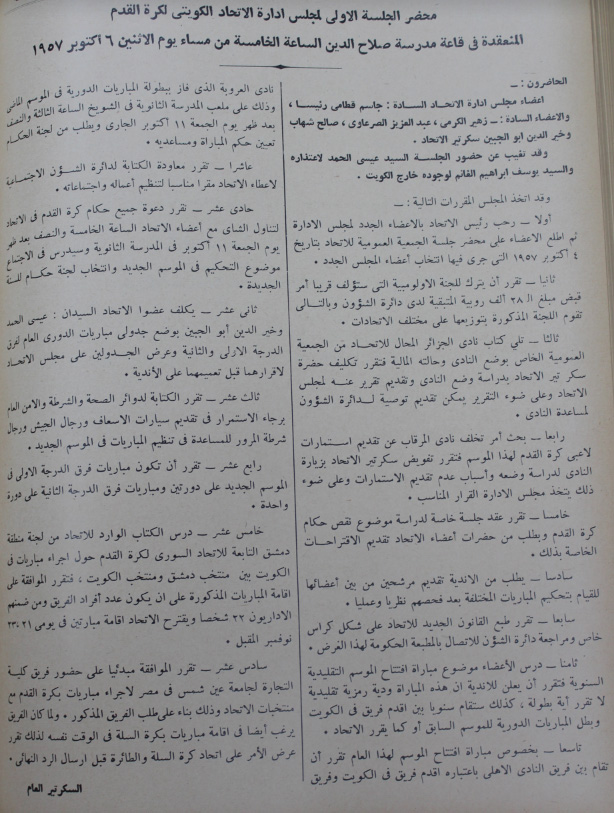 محضر الجلسة الاولى لمجلس ادارة الاتحاد الكويتى لكرة القدم
المنعقدة فى قاعة مدرسة صلاح الدين الساعة الخامسة من مساء يوم الاثنين ٦ اكتوبر ١٩٥٧
الحاضرون : —
اعضاء مجلس ادارة الاتحاد السادة : جاسم قطامى رئيسا ،
والاعضاء السادة : — زهير الكرمى ، عبد العزيز الصرعاوى ، صالح شهاب
وخير الدين ابو الجبين سكرتير الاتحاد .
وقد تغيب عن حضور الجلسة السيد عيسى الحمد لاعتذاره
والسيد يوسف ابراهيم الغانم لوجوده خارج الكويت .
وقد اتخذ المجلس المقررات التالية : —
أولا — رحب رئيس الاتحاد بالاعضاء الجدد لمجلس الادارة
ثم اطلع الاعضاء على محضر جلسة الجمعية العمومية للاتحاد بتاريخ
٤ أكتوبر ١٩٥٧ التى جرى فيها انتخاب أعضاء المجلس الجدد .
ثانيا — تقرر أن يترك للجنة الاولومبية التى ستؤلف قريبا أمر
قبض مبلغ الـ ٢٨ ألف روبية المتبقية لدى دائرة الشؤون وبالتالى
تقوم اللجنة المذكورة بتوزيعها على مختلف الاتحادات .
ثالثا — تلي كتاب نادى الجزائر المحال للاتحاد من الجمعية
العمومية الخاص بوضع النادى وحالته المالية فتقرر تكليف حضرة
سكرتير الاتحاد بدراسة وضع النادى وتقديم تقرير عنه لمجلس
الاتحاد وعلى ضوء التقرير يمكن تقديم توصية لدائرة الشؤون
لمساعدة النادى .
رابعا — بحث أمر تخلف نادى المرقاب عن تقديم استمارات
لاعبى كرة القدم لهذا الموسم فتقرر تفويض سكرتير الاتحاد بزيارة
النادى لدراسة وضعه وأسباب عدم تقديم الاستمارات وعلى ضوء
ذلك يتخذ مجلس الادارة القرار المناسب .
خامسا — تقرر عقد جلسة خاصة لدراسة موضوع نقص حكام
كرة القدم ويطلب من حضرات أعضاء الاتحاد تقديم الاقتراحات
الخاصة بذلك .
سادسا — يطلب من الاندية تقديم مرشحين من بين أعضائها
للقيام بتحكيم المباريات المختلفة بعد فحصهم نظريا وعمليا .
سابعا — تقرر طبع القانون الجديد للاتحاد على شكل كراس
خاص ومراجعة دائرة الشؤن للاتصال بالمطبعة الحكومة لهذا الغرض .
ثامنا — درس الأعضاء موضوع مباراة افتتاح الموسم التقليدية
السنوية فتقرر أن يعلن للاندية ان هذه المباراة ودية رمزية تقليدية
لا تقرر أية بطولة ، كذلك ستقام سنويا بين اقدم فريق فى الكويت
وبطل المباريات الدورية للموسم السابق أو كما يقرر الاتحاد .
تاسعا — بخصوص مباراة افتتاح الموسم لهذا العام تقرر أن
تقام بين فريق النادى الاهلى باعتباره اقدم فريق فى الكويت وفريق
نادى العروبة الذى فاز ببطولة المباريات الدورية فى الموسم الماضى
وذلك على ملعب المدرسة الثانوية فى الشويخ الساعة الثالثة والنصف
بعد ظهر يوم الجمعة ١١ أكتوبر الجارى ويطلب من لجنة الحكام
تعيين حكم المباراة ومساعديه .
عاشرا — تقرر معاودة الكتابة لدائرة الشؤن الاجتماعية
لاعطاء الاتحاد مقرا مناسبا لتنظيم أعماله واجتماعاته .
حادى عشر — تقرر دعوة جميع حكام كرة القدم فى الاتحاد
لتناول الشاى مع أعضاء الاتحاد الساعة الخامسة والنصف بعد ظهر
يوم الجمعة ١١ أكتوبر فى المدرسة الثانوية وسيدرس فى الاجتماع
موضوع التحكيم فى الموسم الجديد وانتخاب لجنة حكام للسنة
الجديدة .
ثانى عشر — يكلف عضوا الاتحاد السيدان : عيسى الحمد
وخير الدين أبو الجبين بوضع جدولى مباريات الدورى العام لفرق
الدرجة الاولى والثانية وعرض الجدولين على مجلس الاتحاد
لاقرارهما قبل تعميمهما على الأندية .
ثالث عشر — تقرر الكتابة لدوائر الصحة والشرطة والامن العام
برجاء الاستمرار فى تقديم سيارات الاسعاف ورجال الجيش ورجال
شرطة المرور للمساعدة فى تنظيم المباريات فى الموسم الجديد .
رابع عشر — تقرر أن تكون مباريات فرق الدرجة الاولى فى
الموسم الجديد على دورتين ومباريات فرق الدرجة الثانية على دورة
واحدة .
خامس عشر — درس الكتاب الوارد للاتحاد من لجنة منطقة
دمشق التابعة للاتحاد السورى لكرة القدم حول اجراء مباريات فى
الكويت بين منتخب دمشق ومنتخب الكويت ، فتقرر الموافقة على
اقامة المباريات المذكورة على ان يكون عدد أفراد الفريق ومن ضمنهم
الاداريون ٢٢ شخصا ويقترح الاتحاد اقامة مبارتين فى يومى ٢١ ، ٢٣
نوفمبر المقبل .
سادس عشر — تقرر الموافقة مبدئيا على حضور فريق كلية
التجارة لجامعة عين شمس فى مصر لاجراء مباريات بكرة القدم مع
منتخبات الاتحاد وذلك بناء على طلب الفريق المذكور . ولما كان الفريق
يرغب أيضا فى اقامة مباريات بكرة السلة فى الوقت نفسه لذلك تقرر
عرض الأمر على اتحاد كرة السلة والطائرة قبل ارسال الرد النهائى .
السكرتير العام